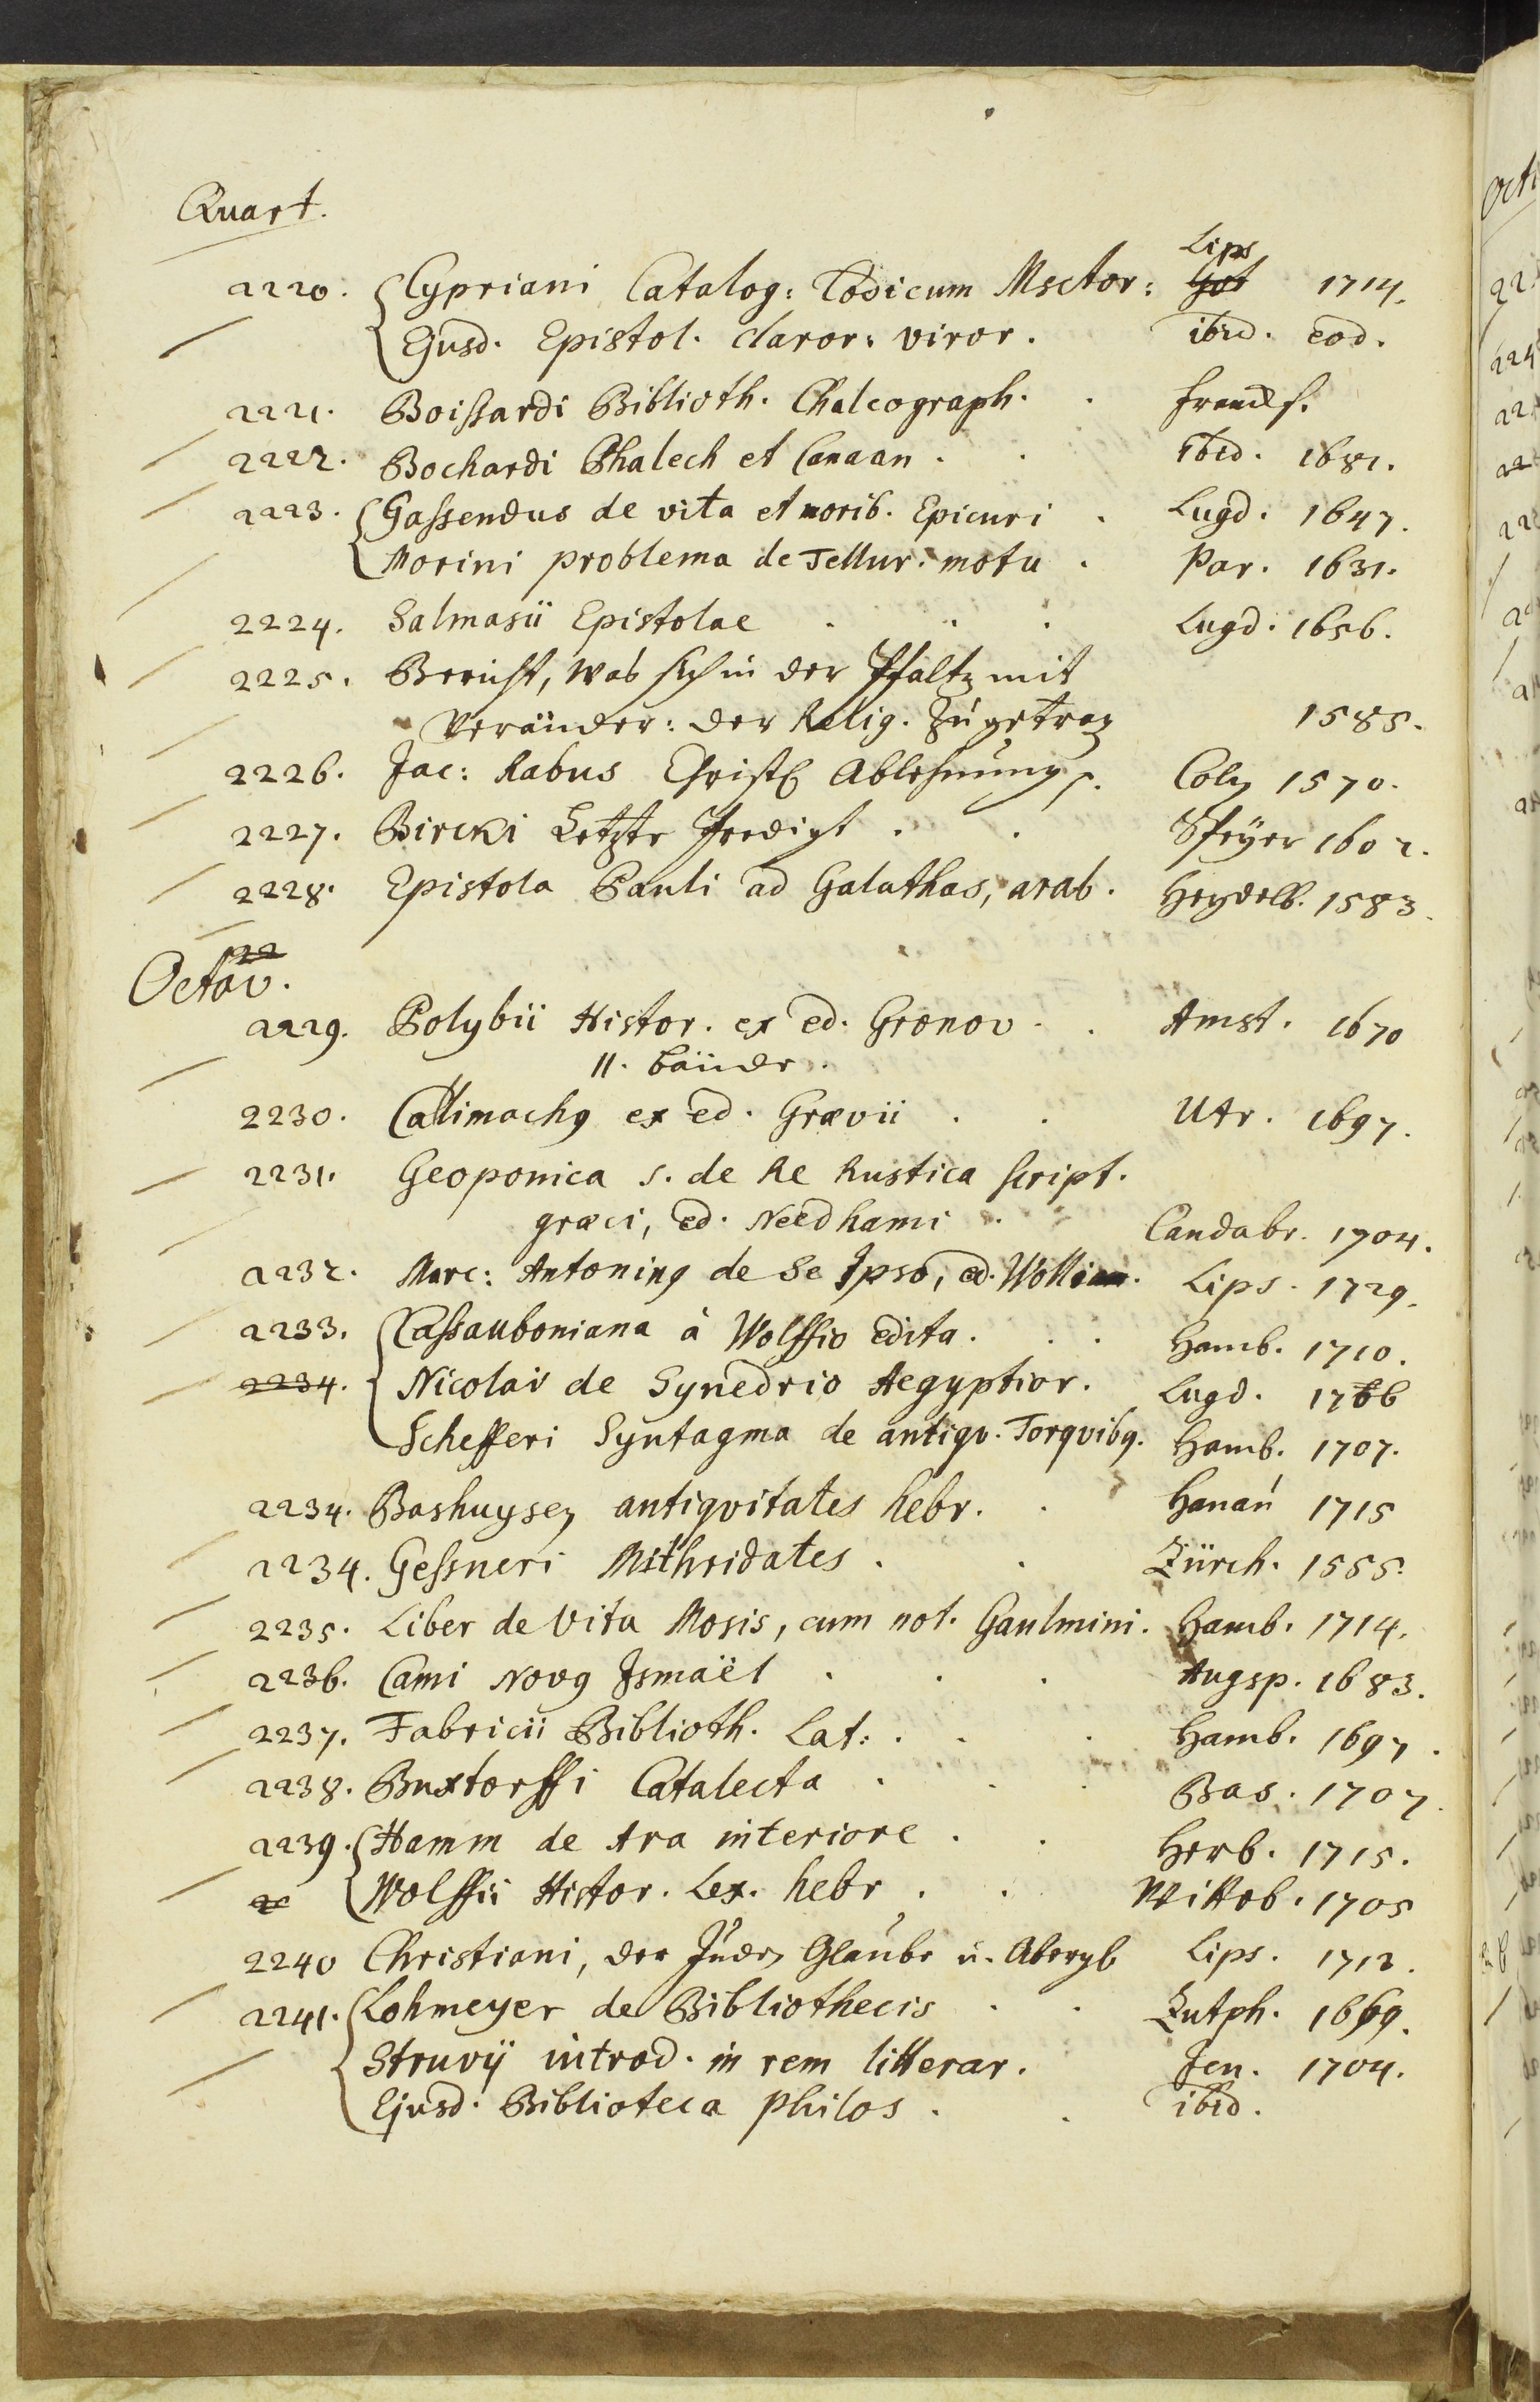 Quart.
2220. Cypriani Catalog: Codicum Msctor: Lips 1714.
Ejusd. Epistol. claror: viror. ibid. eod.
2221. Boißardi Biblioth. Chalcograph. . Francf.
2222. Bochardi Phalech et Canaan . . ibid. 1681.
2223. Gaßendus de vita et morib. Epicuri . Lugd. 1647.
Morini problema de Tellur. motu . Par. 1631.
2224. Salmasii Epistolae . . . Lugd. 1656.
2225. Bericht, was sich in der Pfaltz mit
Veränder: der Relig. zugetrag 1585.
2226. Jac: Rabus Christl Ablehnung p. Cöln 1570.
2227. Bircki Letzte Predigt . . Speÿer 1602.
2228. Epistola Pauli ad Galathas, arab. Heydelb. 1583.
Octav.
2229. Polybii Histor. ex ed. Gronov . . Amst. 1670
II. bände.
2230. Callimachg ex ed. Grævii . . Utr. 1697.
2231. Geoponica s. de Re Rustica script.
græci, ed. Needhami . Candabr. 1704.
2232. Marc: Antoning de Se Ipso, ed. Lips. 1729.
2233. Caßauboniana à Wolffio edita . . . Hamb. 1710.
2234. Nicolai de Synedrio Aegyptior. Lugd.
Schefferi Syntagma de antiqv. Torqvibg. Hamb. 1707.
2234. Bashuysen antiqvitates hebr. . Hanau 1715
2234. Geßneri Mithridates . . Zürch. 1555.
2235. Liber de Vita Mosis, cum not. Gaulmini. Hamb. 1714.
2236. Cami Novg Ismaël . . . Augsp. 1683.
2237. Fabricii Biblioth. Lat: . . . Hamb. 1697.
2238. Buxtorffi Catalecta . . . Bas. 1707.
2239. Hamm de Ara interiore . . Herb. 1715.
Wolffii Histor. Lex. hebr . . Witteb. 1705
2240 Christiani, der Juden Glaube u. Abergl Lips. 1712.
2241. Lohmeyer de Bibliothecis . . Zutph. 1669.
Struvij introd. in rem litterar. Jen. 1704.
Ejusd. Biblioteca philos . . ibid.